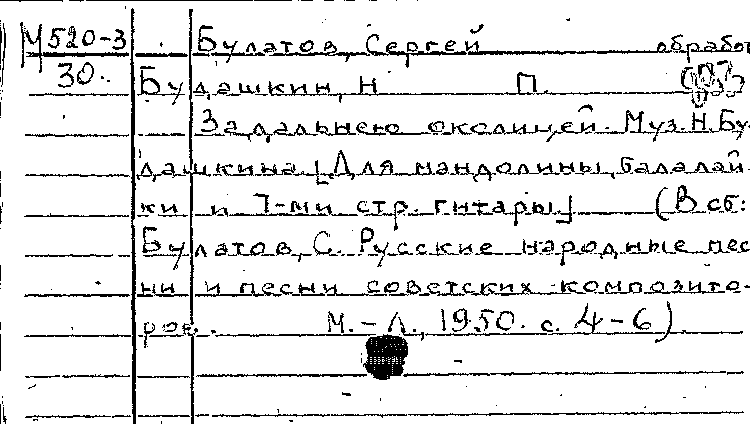 М520-3 Булатов, Сергей обработ
30. Будашкин, Н П.
За дальнею околицей. Муз. Н. Бу-
дашкина. [Для мандолины, балалай-
ки и 7-ми стр. гитары] (В сб:
Булатов, С. Русские народные пес
ни и песни советских композито-
ров. М. - Л., 1950. с. 4-6)